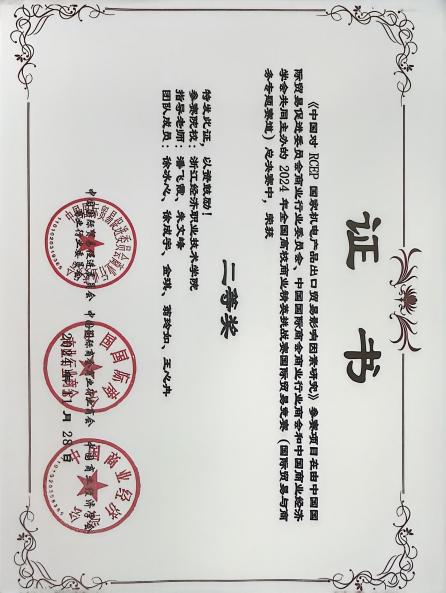 证书
《中国对 RCEP 国家机电产品出口贸易影响因素研究》参赛项目在由中国国
际贸易促进委员会商业行业委员会、中国国际商会商业行业商会和中国商业经济
学会共同主办的 2024 年全国高校商业精英挑战赛国际贸易竞赛（国际贸易与商
务专题赛道）总决赛中，荣获
二等奖
特发此证，以资鼓励！
参赛院校：浙江经济职业技术学院
指导老师：潘飞微、朱文峰
团队成员：徐冰心、徐成宇、金琪、翁玲如、王心冉
中国国际贸易促进委员会 中国国际商会商业行业商会 中国商业经济学会
商业行业委员会
2024年11月28日